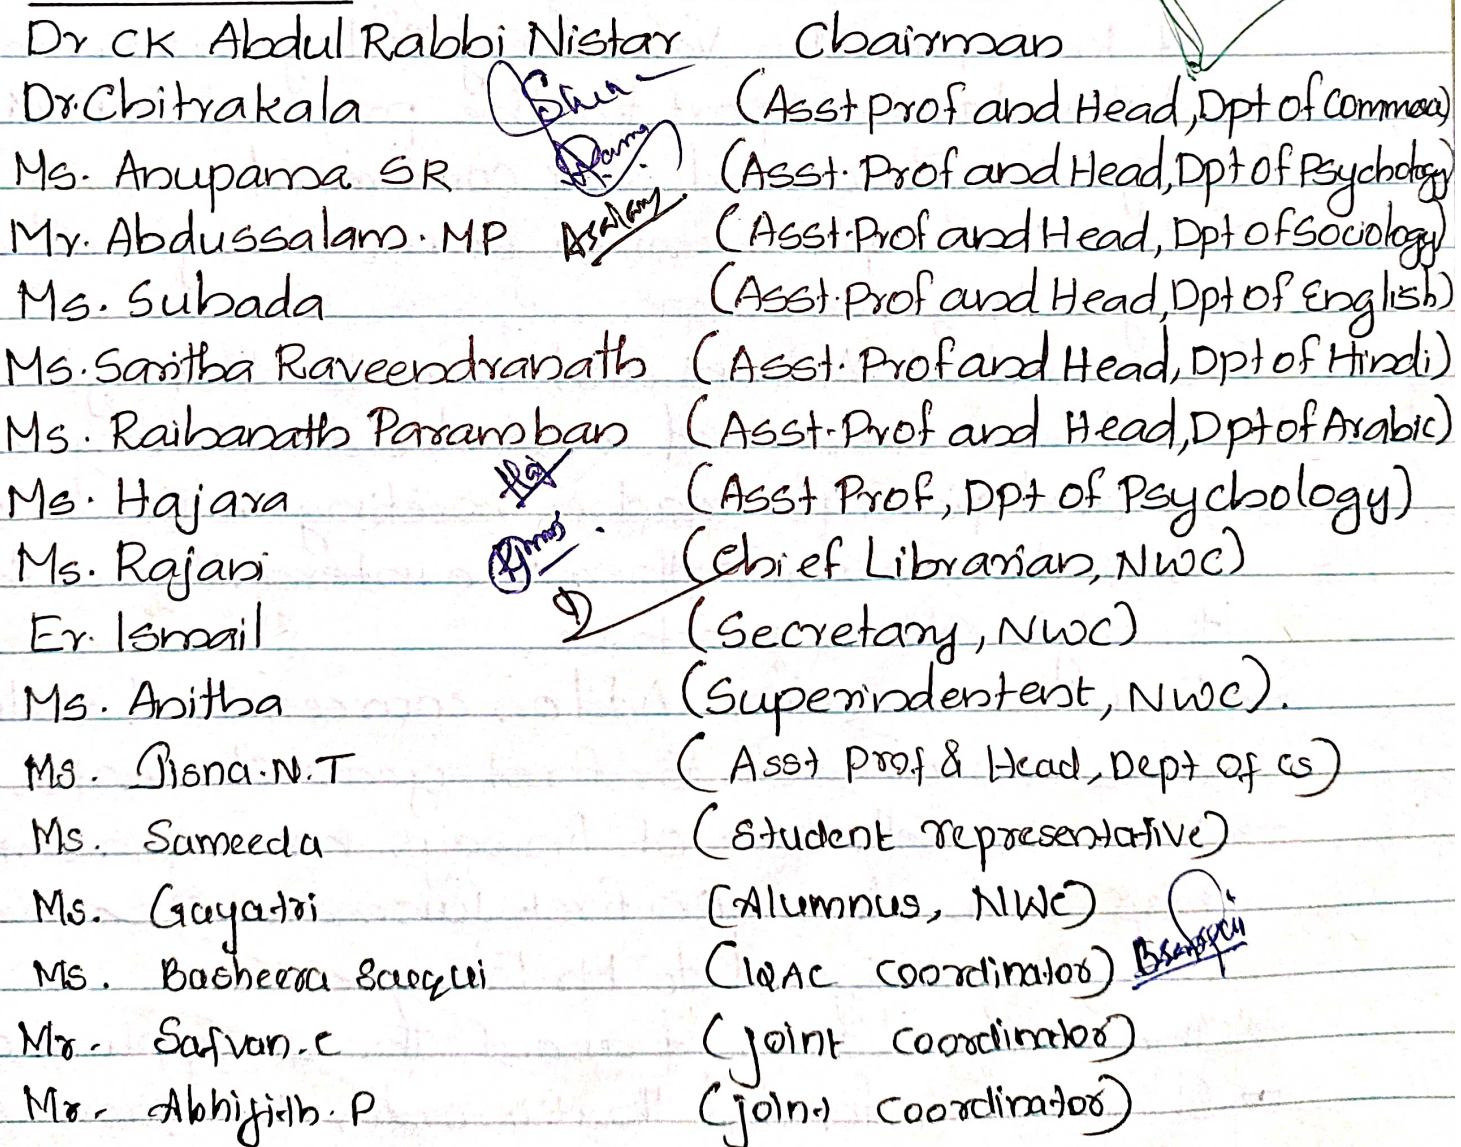 Dr CK Abdul Rabbi Nistar Chairman
Dr. Chitrakala (Asst prof and Head, Dpt of Commerce)
Ms. Anupama SR (Asst. Prof and Head, Dpt of Psychology)
Mr. Abdussalam. MP Assalam (Asst. Prof and Head, Dpt of Sociology)
Ms. Subada (Asst. Prof and Head, Dpt of English)
Ms. Saritha Raveendranath (Asst. Prof and Head, Dpt of Hindi)
Ms. Raihanath Paramban (Asst. Prof and Head, Dpt of Arabic)
Ms. Hajara Haj (Asst Prof, Dpt of Psychology)
Ms. Rajani (Chief Librarian, NWC)
Er. Ismail (Secretary, NWC)
Ms. Anitha (Superindentent, NWC).
Ms. Jisna. N. T (Asst prof & Head, Dept of CS)
Ms. Sameeda (Student representative)
Ms. Gayatri (Alumnus, NWC)
Ms. Basheera (IQAC coordinator)
Mr. Safvan. C (joint coordinator)
Mr. Abhijith. P (joint coordinator)